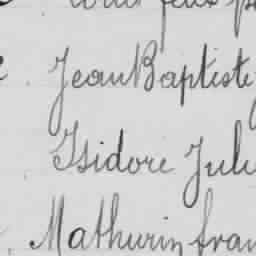 Jean Baptiste
Isidore Jule
Mathurin fran